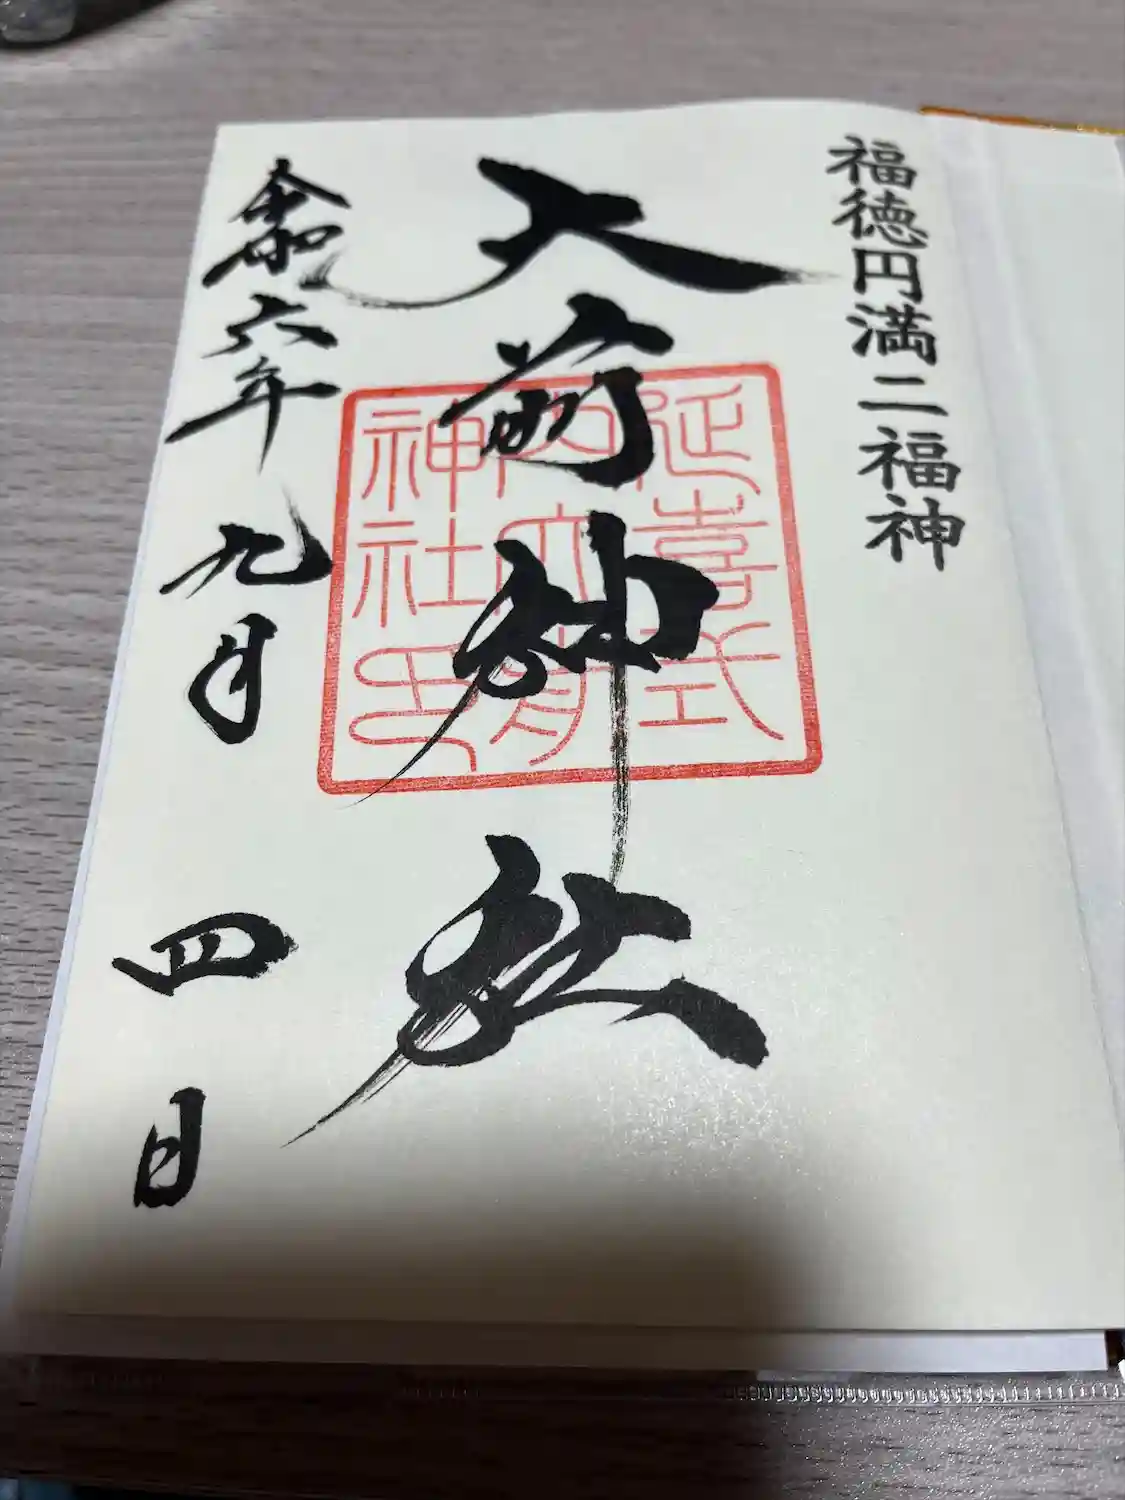 福徳円満二福神
大前神社
延喜式
内大前
神社印
令和六年九月四日